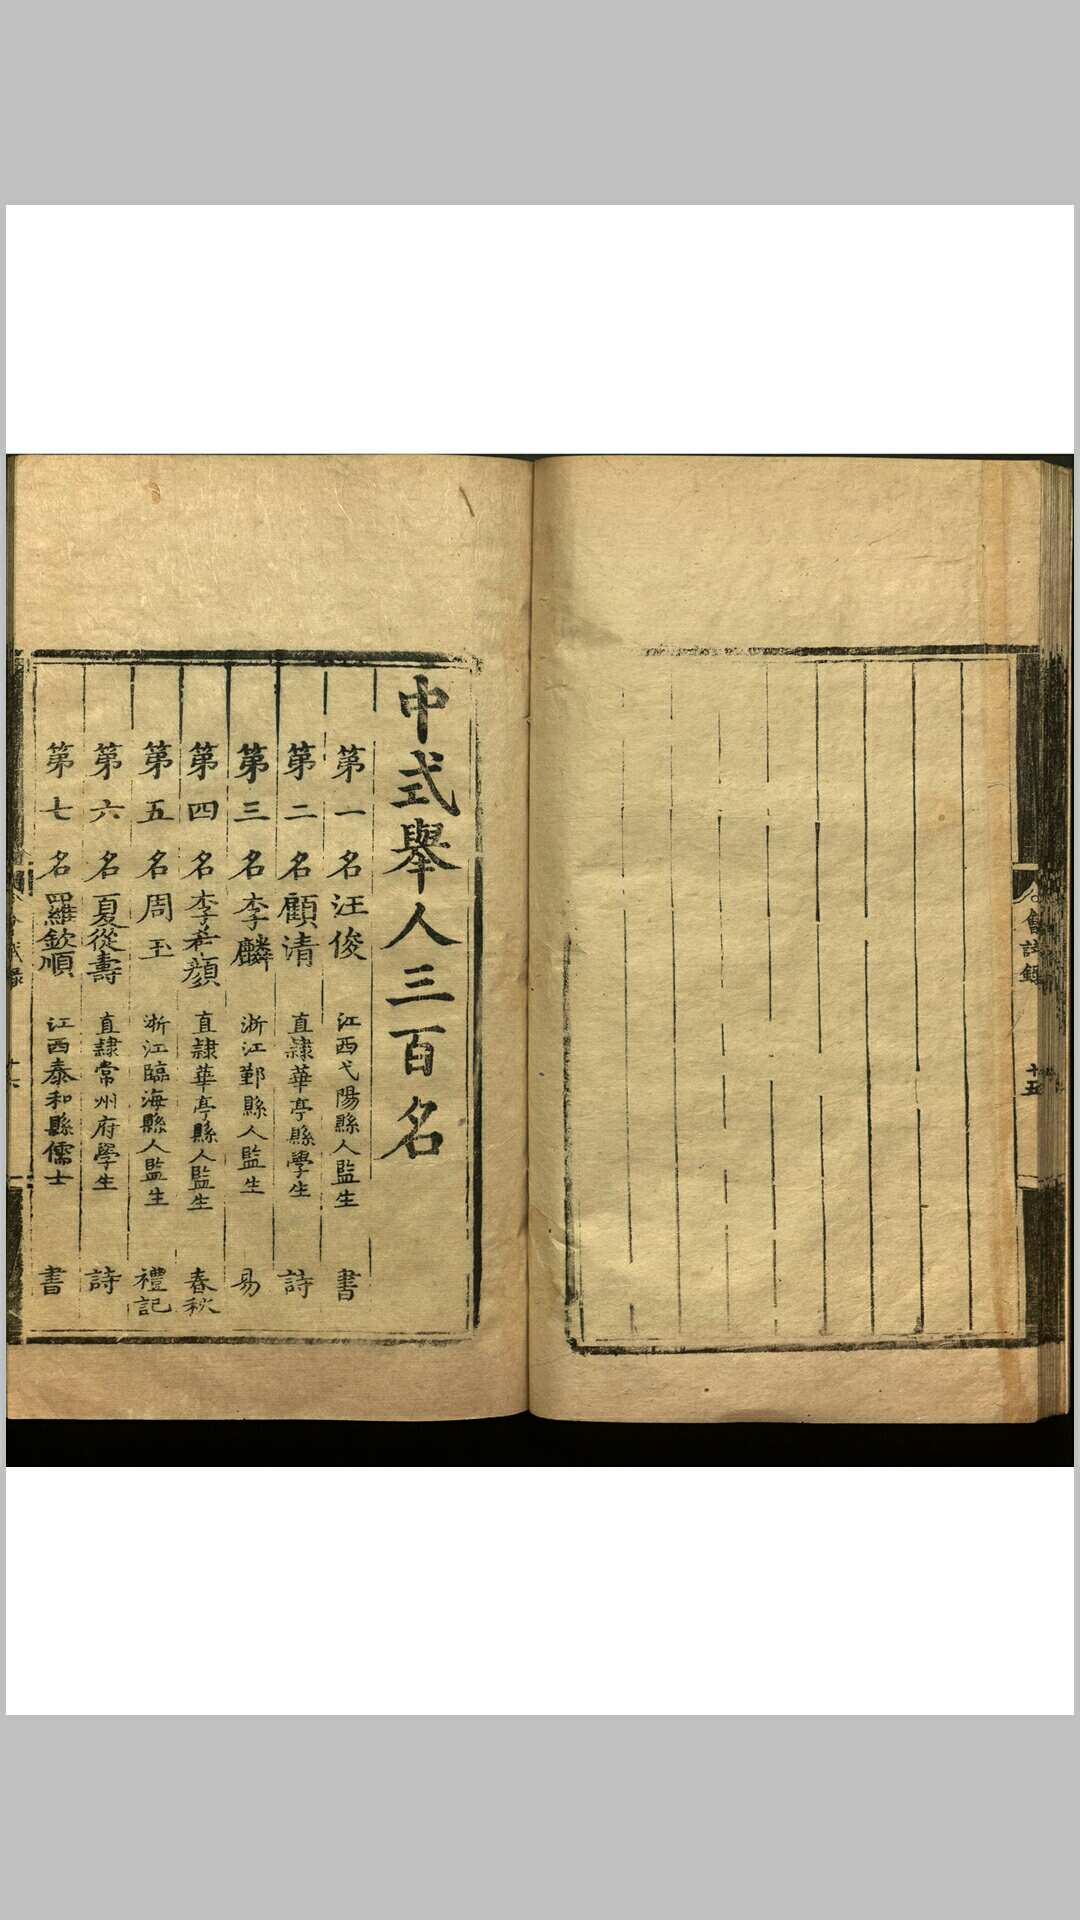 會試録
十五
中式舉人三百名
第一名汪俊 江西弋陽縣人監生 書
第二名顧清 直隷華亭縣學生 詩
第三名李麟 浙江鄞縣人監生 易
第四名李希顔 直隷華亭縣人監生 春秋
第五名周玉 浙江臨海縣人監生 禮記
第六名夏從壽 直隷常州府學生 詩
第七名羅欽順 江西泰和縣儒士 書